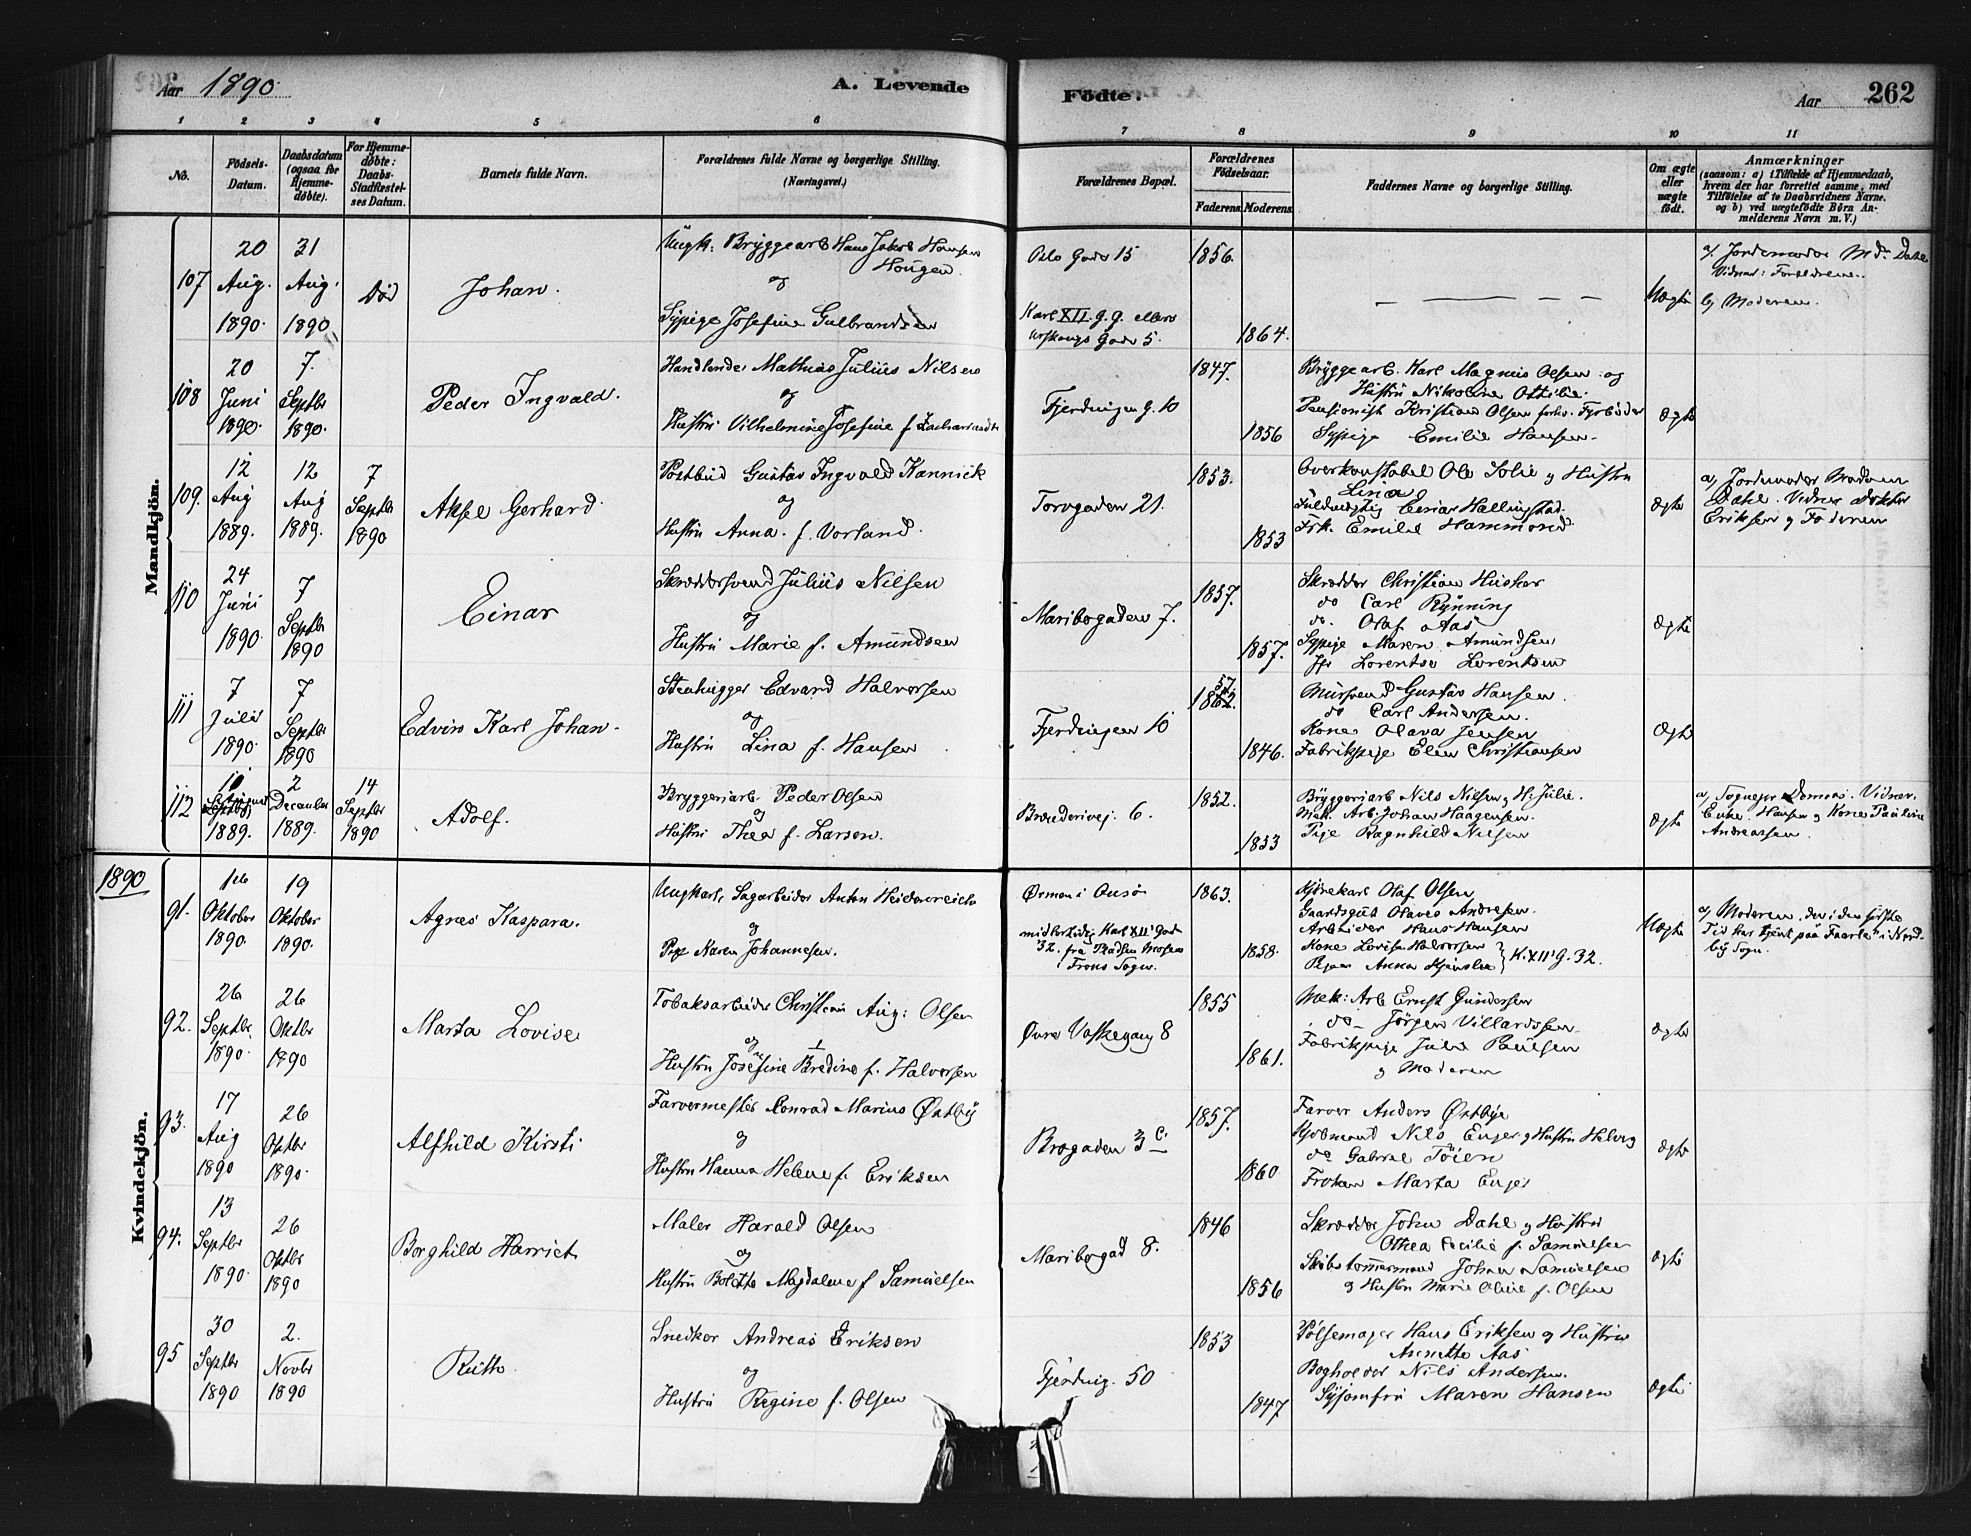 Aar 1890. A. Levende Födte. Aar 262
1 2 3 4 5 6 7 8 9 10 11
No.
Födsels-
Datum.
Daabsdatum
(ogsaa for
Hjemme-
døbte).
For Hjemme-
døbte:
Daabs-
Stadfæstel-
ses Datum.
Barnets fulde Navn.
Forældrenes fulde Navne og borgerlige Stilling.
(Næringsvei.)
Forældrenes Bopæl.
Forældrenes
Födselsaar.
Faderens. Moderens.
Faddernes Navne og borgerlige Stilling.
Om ægte
eller
uægte
født.
Anmærkninger
(saasom: a) i Tilfælde af Hjemmedaab,
hvem der har forrettet samme, med
Tilföielse af to Daabsvidners Navne.
og b) ved uægtefödte Börn An-
melderens Navn m. V.)
Mandkjön.
107
20
Aug.
1890.
31
Aug.
1890.
Död
Johan.
Ungk: Bryggearb Hans Jakob Hansen
Hougen.
og
Sypige Josefine Gulbrandsen
Oslo Gade 15
Karl XII. g. 9.
Gade 5.
1856.
1864.
Uægte
a). Jordemoder Md. Dahl
Vidner: Forældrene.
b) Moderen.
108
20
Juni
1890.
7.
Septbr
1890.
Peder Ingvald.
Handlende Mathias Julius Nilsen
og
Hustru Vilhelmine Josefine f.
Fjerdingen G. 10
1847.
1856
Bryggearb. Karl Magnus Olsen og
Hustru Nikoline Ottilie.
Pensionist Kristian Olsen forhv. Fyrböder
Sypige Emilie Hansen.
Ægte
109.
12
Aug
1889.
12
Aug
1889.
7
Septbr
1890
Aksel Gerhard
Postbud Gustav Ingvald Kannick
og
Hustru Anna f. Vorland.
Torvgaden 21.
1853.
1853
Overkonstabel Ole Solie og Hustru
Lina
Fuldmægtig Einar Hallingstad.
Frk. Emilie Hammond
Ægte
a) Jordemoder Madam
Dahl. Vidner Doktor
Eriksen og Faderen
110
24
Juni
1890.
7
Septbr
1890
Einar
Skræddersvend Julius Nilsen
og
Hustru Marie f. Amundsen
Maribogaden 7.
1857.
1857.
Skrædder Christian Husher
do Carl Rynning
do. Olaf Aas
Sypige Maren Amundsen
Jfr Lorentse Lorentsen
Ægte
111
7
Juli
1890.
7
Septbr
1890
Edvin Karl Johan.
Stenhugger Edvard Halvorsen
og
Hustru Lina f. Hansen
Fjerdingen 10
57.
1862.
1846.
Mursvend Gustav Hansen.
do Carl Andersen.
Kone Olava Jensen
Fabrikpige Elen Christiansen
Ægte
112
10
1889.
2
December
1889.
14
Septbr
1890
Adolf.
Bryggeriarb. Peder Olsen
og
Hustru Thea f. Larsen.
Brænderivej. 6.
1852.
1853
Bryggeriarb Nils Nilsen og H. Julie.
Mek. Arb. Johan Haagensen.
Pige Ragnhild Nilsen
Ægte
a) Sognepr Vidner.
Enke Hansen og Kone Pauline
Andreassen.
1890
Kvindekjön.
91.
16
Oktober
1890.
19
Oktober
1890.
Agnes Kaspara.
Ungkarl, Sagarbeider Anton Heidenreich
og
Pige Karen Johannesen.
Ørmen i Onsø
midlertidig Karl XII' Gad
32. fra
i Frons Sogn.
1863.
1858.
Kjörekarl Olaf Olsen
Gaardsgut Olaves Andresen.
Arbeider Hans Hansen
Kone Lovise Halvorsen
Pigen Anna } K. XII' G. 32.
Uægte
a) Moderen, der i den sidste
Tid har tjent paa i Nord-
by Sogn.
92.
26
Septbr.
1890.
26
Oktbr
1890
Marta Lovise
Tobaksarbeider Christian Aug: Olsen
og
Hustru Josefine Bredine f. Halvorsen
Øvre Vaskegang 8
1855
1861.
Mek: Arb Ernst Gundersen
do Jörgen Villardssen
Fabrikpige Julie Paulsen
og Moderen
Ægte
93.
17
Aug
1890
26
Oktbr
1890.
Alfhild Kirsti
Farvermester Konrad Marius Østby
og
Hustru Hanna Helene f. Eriksen
Brogaden 3 c.
1857.
1860
Farver Anders Østbye
Kjöbmand Nils Enger og Hustru Helvig
do Gabriel Töien
Froken Marta Enger
Ægte
94.
13
Septbr
1890.
26
Oktbr
1890
Borghild Harriet
Maler Harald Olsen
og
Hustru Bolette Magdalene f. Samuelsen
Maribogad 8.
1846
1856
Skrædder John Dahl og Hustru
Othea Cecilie f. Samuelsen
Skibstömmermand Johan Samuelsen
og Hustru Marie Oline f. Olsen
Ægte
95
30
Septbr
1890
2.
Novbr
1890
Ruth.
Snedker Andreas Eriksen
og
Hustru Regine f. Olsen
Fjerding. 50
1853
1847
Pölsemager Hans Eriksen og Hustru
Annette Aas
Bogholder Nils Andersen.
Syjomfru Maren Hansen
Ægte